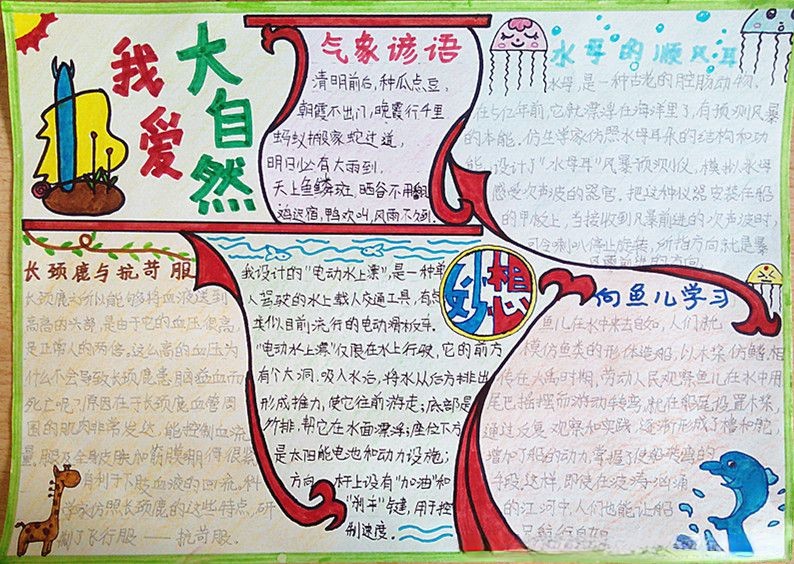 我爱
大自然
气象谚语
清明前后,种瓜点豆,
朝霞不出门,晚霞行千里
蚂蚁搬家蛇过道,
明日必有大雨到.
天上鱼鳞斑,晒谷不用翻
鸡迟宿,鸭欢叫,风雨不久到.
水母的顺风耳
水母,是一种古老的腔肠动物.
在5亿年前,它就漂浮在海洋里了,有预测风暴
的本能,仿生学家仿照水母耳朵的结构和功
能,设计了"水母耳"风暴预测仪,模拟水母
感受次声波的器官.把这种仪器安装在船
的甲板上,当接收到风暴前进的次声波时,
可令喇叭停止旋转,所指方向就是暴
风雨前进的方向.
长颈鹿与抗荷服
长颈鹿之所以能够将血液送到
高高的头部,是由于它的血压很高,
是正常人的两倍.这么高的血压为
什么不会导致长颈鹿患脑溢血而
死亡呢?原因在于长颈鹿血管周
围的肌肉非常发达,能控制血流
量.腿及全身皮肤和筋膜绷得很紧
有利于下肢血液的回流,科
学家仿照长颈鹿的这些特点,研
制了飞行服——抗荷服.
我设计的"电动水上漂",是一种单
人驾驶的水上载人交通工具,有点
类似目前流行的电动滑板车.
"电动水上漂"仅限在水上行驶,它的前方
有个大洞.吸入水后,将水从后方排出
形成推力,使它往前游走;底部是
竹排,帮它在水面漂浮;座位下方
是太阳能电池和动力设施;
方向杆上设有"加油"和
"刹车"键,用于控
制速度.
妙想
向鱼儿学习
鱼儿在水中来去自如,人们就
模仿鱼类的形体造船,以木桨仿鳍.相
传在大禹时期,劳动人民观察鱼儿在水中用
尾巴摇摆而游动转弯,就在船尾设置木桨,
通过反复观察和实践,逐渐形成了橹和舵,
增加了船的动力,掌握了使船转弯的
手段.这样,即使在波涛汹涌
的江河中,人们也能让船
只航行自如.